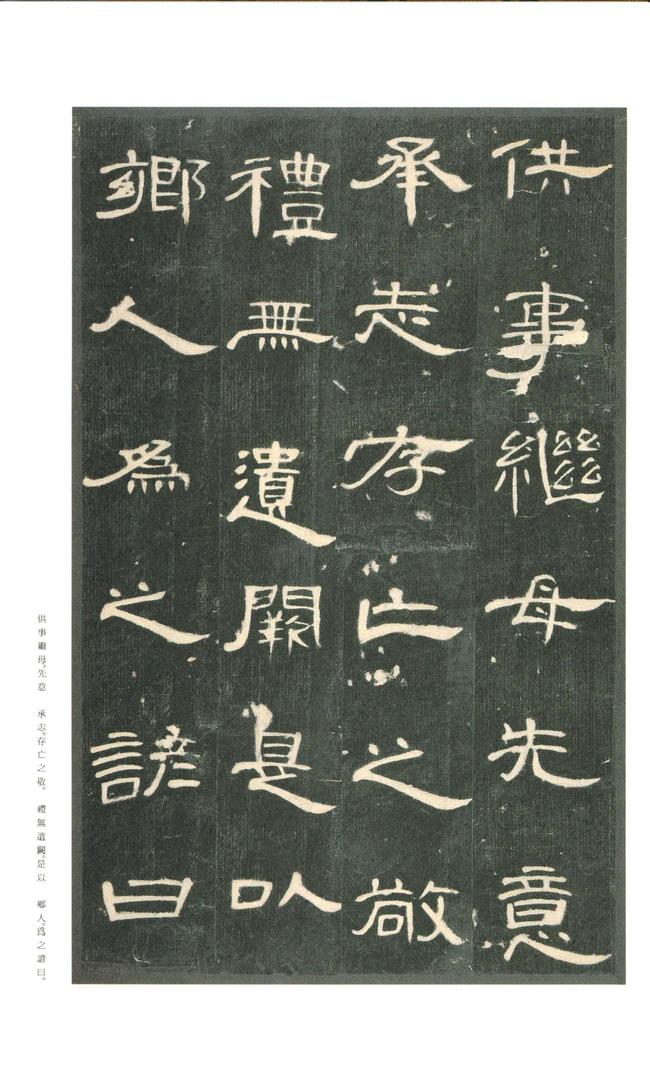 供事繼母先意
承志存亡之敬
禮無遺闕是以
鄉人爲之諺曰
供事繼母。先意　承志。存亡之敬。　禮無遺闕。是以　鄉人。爲之諺曰。